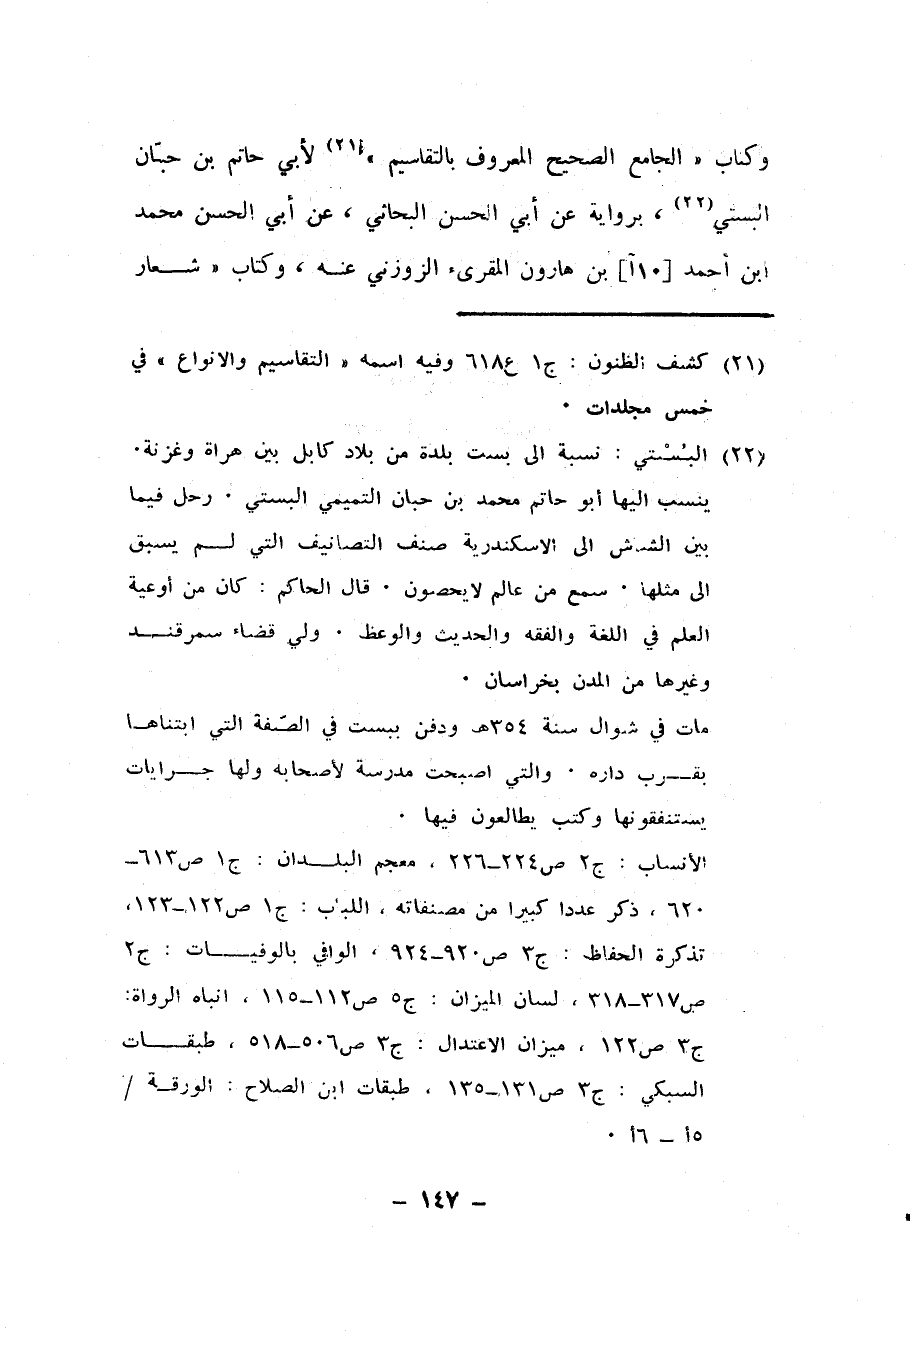 وكتاب « الجامع الصحيح المعروف بالتقاسيم »(٢١) لأبي حاتم بن حبّان
البستي(٢٢) ، برواية عن أبي الحسن البحاثي ، عن أبي الحسن محمد
ابن أحمد [١٠آ] بن هارون المقرىء الزوزني عنه ، وكتاب « شعار
(٢١) كشف الظنون : ج١ ع٦١٨ وفيه اسمه « التقاسيم والانواع » في
خمس مجلدات ٠
(٢٢) البُسْتي : نسبة الى بست بلدة من بلاد كابل بين هراة وغزنة٠
ينسب اليها أبو حاتم محمد بن حبان التميمي البستي ٠ رحل فيما
بين الشاش الى الاسكندرية صنف التصانيف التي لم يسبق
الى مثلها ٠ سمع من عالم لايحصون ٠ قال الحاكم : كان من أوعية
العلم في اللغة والفقه والحديث والوعظ ٠ ولي قضاء سمرقند
وغيرها من المدن بخراسان ٠
مات في شوال سنة ٣٥٤هـ ودفن ببست في الصّفة التي ابتناها
بقرب داره ٠ والتي اصبحت مدرسة لأصحابه ولها جرايات
يستنفقونها وكتب يطالعون فيها ٠
الأنساب : ج٢ ص٢٢٤ـ٢٢٦ ، معجم البلدان : ج١ ص٦١٣ـ
٦٢٠ ، ذكر عددا كبيرا من مصنفاته ، اللباب : ج١ ص١٢٢ـ١٢٣،
تذكرة الحفاظ : ج٣ ص٩٢٠ـ٩٢٤ ، الوافي بالوفيات : ج٢
ص٣١٧ـ٣١٨ ، لسان الميزان : ج٥ ص١١٢ـ١١٥ ، انباه الرواة:
ج٣ ص١٢٢ ، ميزان الاعتدال : ج٣ ص٥٠٦ـ٥١٨ ، طبقات
السبكي : ج٣ ص١٣١ـ١٣٥ ، طبقات ابن الصلاح : الورقة /
٥أ ـ ٦أ ٠
ـ ١٤٧ ـ